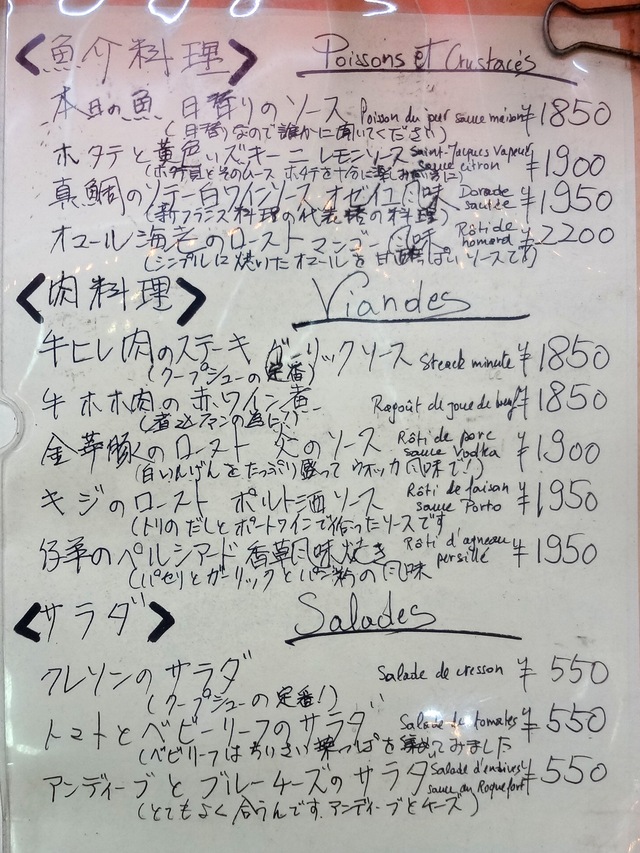 <魚介料理> Poissons et Crustacés
本日の魚 日替りのソース Poisson du jour sauce maison ¥1850
(日替りなので誰かに聞いてください)
ホタテと黄色いズッキーニ レモンソース Saint-Jacques Vapeur sauce citron ¥1900
(ホタテ貝とそのムース ホタテを十分に楽しみ)
真鯛のソテー白ワインソース オゼイユ風味 Dorade sautée ¥1950
(新フランス料理の代表格の料理)
オマール海老のロースト マンゴー風味 Rôti de homard ¥2200
(シンプルに焼いたオマールを甘酸っぱいソースで)
<肉料理> Viandes
牛ヒレ肉のステーキ ガーリックソース Steack minute ¥1850
(クープシューの定番)
牛ホホ肉の赤ワイン煮 Ragoût de joue de bœuf ¥1850
(煮込みファンの為に)
金華豚のロースト のソース Rôti de porc sauce Vodka ¥1900
(白いんげんをたっぷり盛って ウオッカ風味で!)
キジのロースト ポルト酒ソース Rôti de faisan sauce Porto ¥1950
(トリのだしとポートワインで作ったソースです
仔羊のペルシアード 香草風味焼き Rôti d'agneau persillé ¥1950
(パセリとガーリックとパン粉の風味
<サラダ> Salades
クレソンのサラダ Salade de cresson ¥550
(クープシューの定番!)
トマトとベビーリーフのサラダ Salade de tomates ¥550
(ベビリーフはちいさい葉っぱを集めてみました
アンディーブとブルーチーズのサラダ Salade d'endives sauce au Roquefort ¥550
(とてもよく合うんです.アンディーブとチーズ)